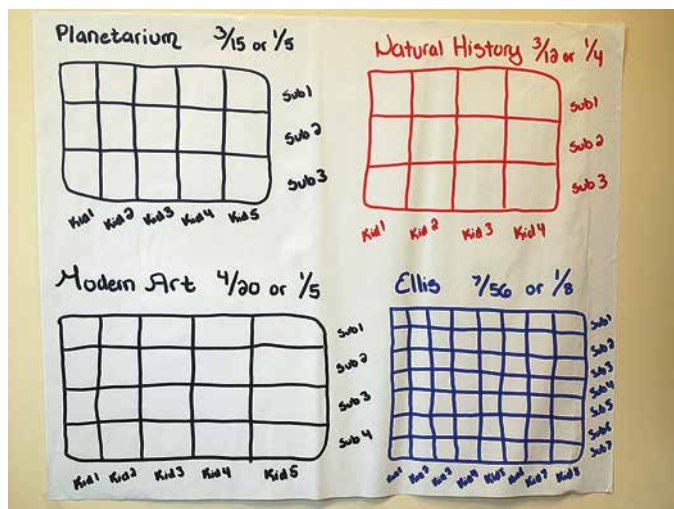 Planetarium 3/15 or 1/5
Sub1
Sub2
Sub3
Kid1 Kid2 Kid3 Kid4 Kid5
Natural History 3/12 or 1/4
Sub1
Sub2
Sub3
Kid1 Kid2 Kid3 Kid4
Modern Art 4/20 or 1/5
Sub1
Sub2
Sub3
Sub4
Kid1 Kid2 Kid3 Kid4 Kid5
Ellis 7/56 or 1/8
Sub1
Sub2
Sub3
Sub4
Sub5
Sub6
Sub7
Kid1 Kid2 Kid3 Kid4 Kid5 Kid6 Kid7 Kid8